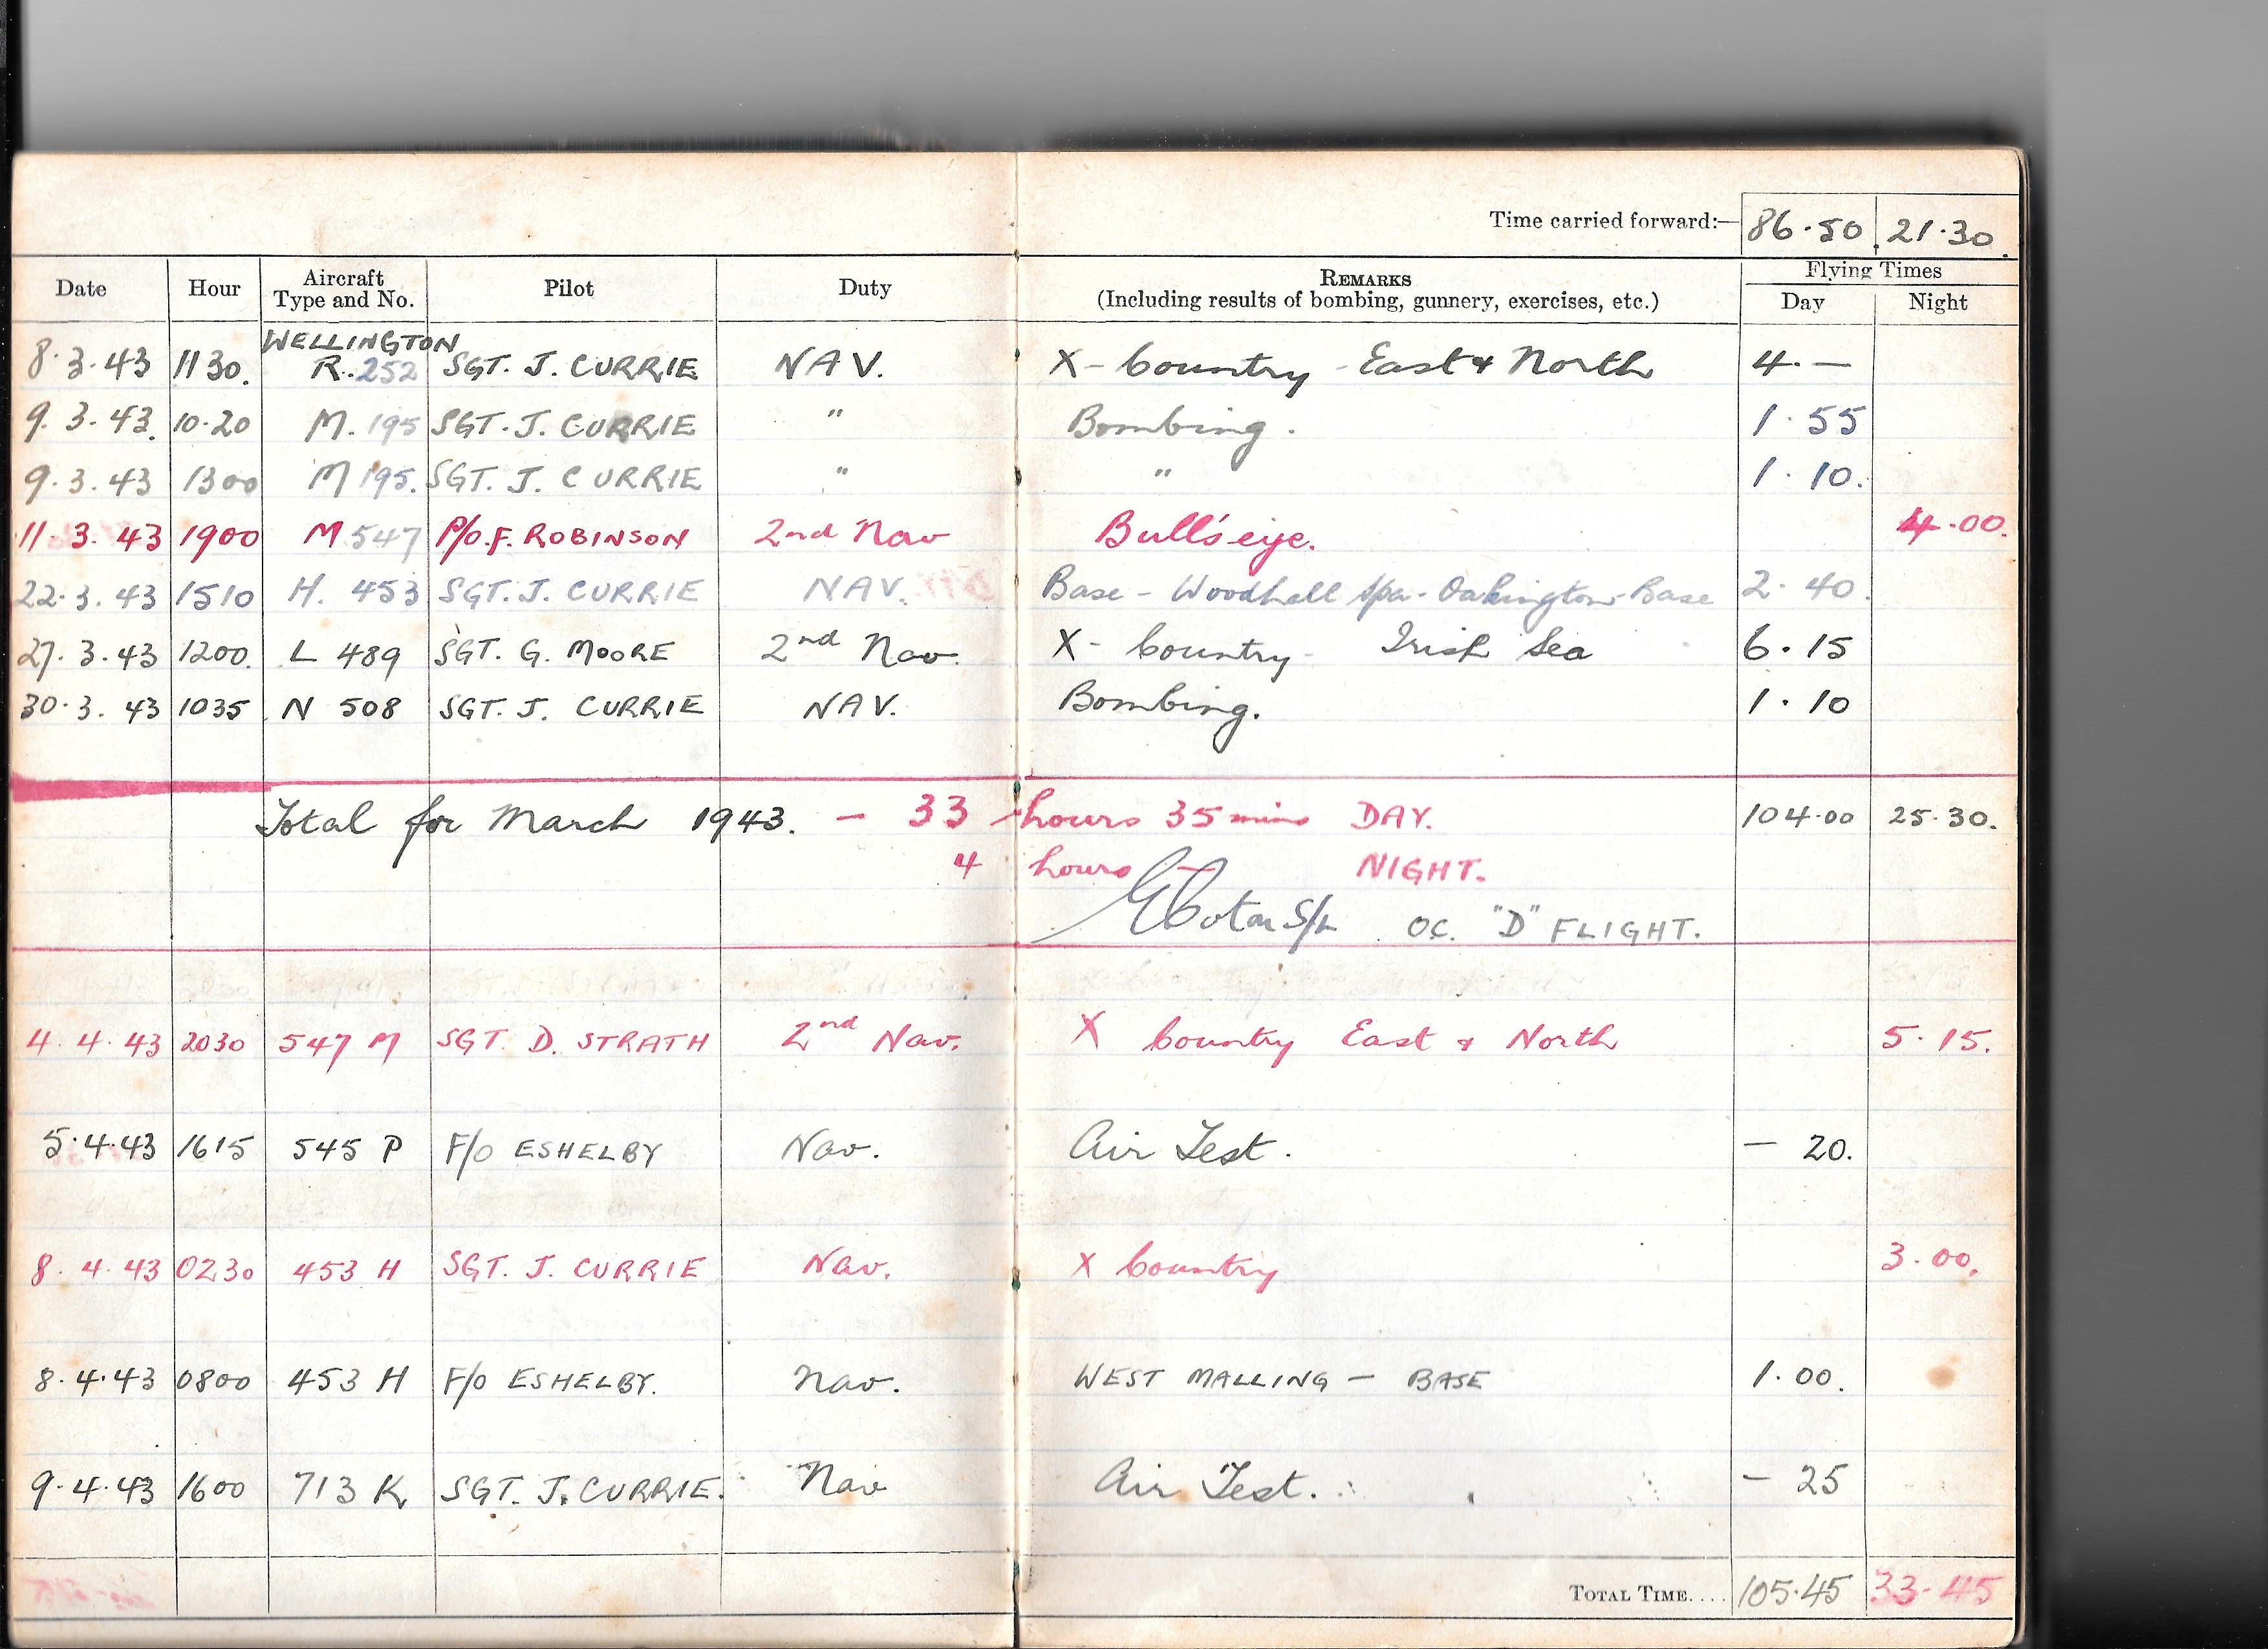 Time carried forward:— 86.50 21.30
Date Hour Aircraft Type and No. Pilot Duty REMARKS (Including results of bombing, gunnery, exercises, etc.) Flying Times Day Night
WELLINGTON
8.3.43 1130. R.252 SGT. J. CURRIE NAV. X-Country - East & North 4.—
9.3.43. 10.20 M.195 SGT. J. CURRIE " Bombing. 1.55
9.3.43 1300 M 195. SGT. J. CURRIE " " 1.10.
11.3.43 1900 M 547 P/O. F. ROBINSON 2nd Nav Bull's eye. 4.00.
22.3.43 1510 H. 453 SGT. J. CURRIE NAV. Base - Woodhall Spa - Oakington - Base 2.40.
27.3.43 1200. L 489 SGT. G. MOORE 2nd Nav. X-Country - Irish Sea 6.15
30.3.43 1035 N 508 SGT. J. CURRIE NAV. Bombing. 1.10
Total for March 1943. - 33 hours 35 mins DAY. 104.00 25.30.
4 hours - NIGHT.
S/L OC. "D" FLIGHT.
4.4.43 2030 547 M SGT. D. STRATH 2nd Nav. X Country East & North 5.15.
5.4.43 1615 545 P F/O ESHELBY Nav. Air Test. — 20.
8.4.43 0230 453 H SGT. J. CURRIE Nav. X Country 3.00.
8.4.43 0800 453 H F/O ESHELBY. Nav. WEST MALLING — BASE 1.00.
9.4.43 1600 713 K SGT. J. CURRIE. Nav Air Test. — 25
TOTAL TIME.... 105.45 33.45